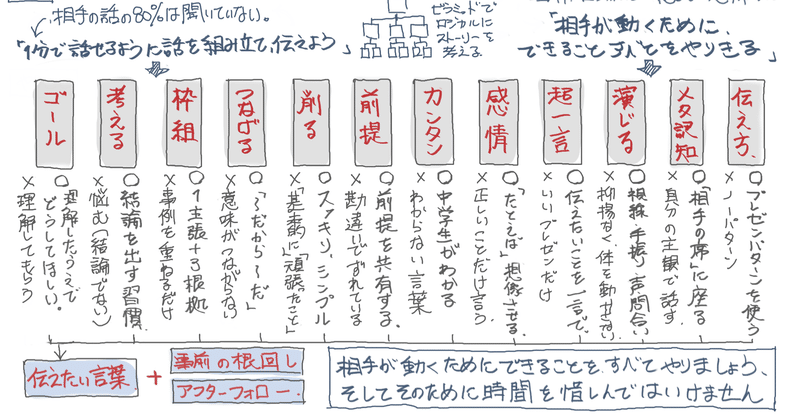 相手の話の80%は聞いていない。
「1分で話せるように話を組み立て、伝えよう」
ピラミッドで
ロジカルに
ストーリーを
考える
「相手が動くために、
できることすべてをやりきる」
ゴール
○理解したうえで
どうしてほしい。
×理解してもらう
考える
○結論を出す習慣
×悩む(結論でない)
枠組
○1主張+3根拠
×事例を重ねるだけ
つなげる
○「〜だから〜だ」
×意味がつながらない
削る
○スッキリ、シンプル
×「基本的に」「頑張たこと」
前提
○前提を共有する
×勘違いでずれている
カンタン
○中学生がわかる
×わからない言葉
感情
○「たとえば」想像させる
×正しいことだけ言う
超一言
○伝えたいことを一言で
×いいプレゼンだけ
演じる
○視線・手振・声間合い
×抑揚なく、体を動かさない
メタ認知
○「相手の席」に座る
×自分の主観で話す
伝え方
○プレゼンパターンを使う
×ノーパターン
伝えたい言葉
+
事前の根回し
アフターフォロー
相手が動くためにできることを、すべてやりましょう、
そしてそのために時間を惜しんではいけません